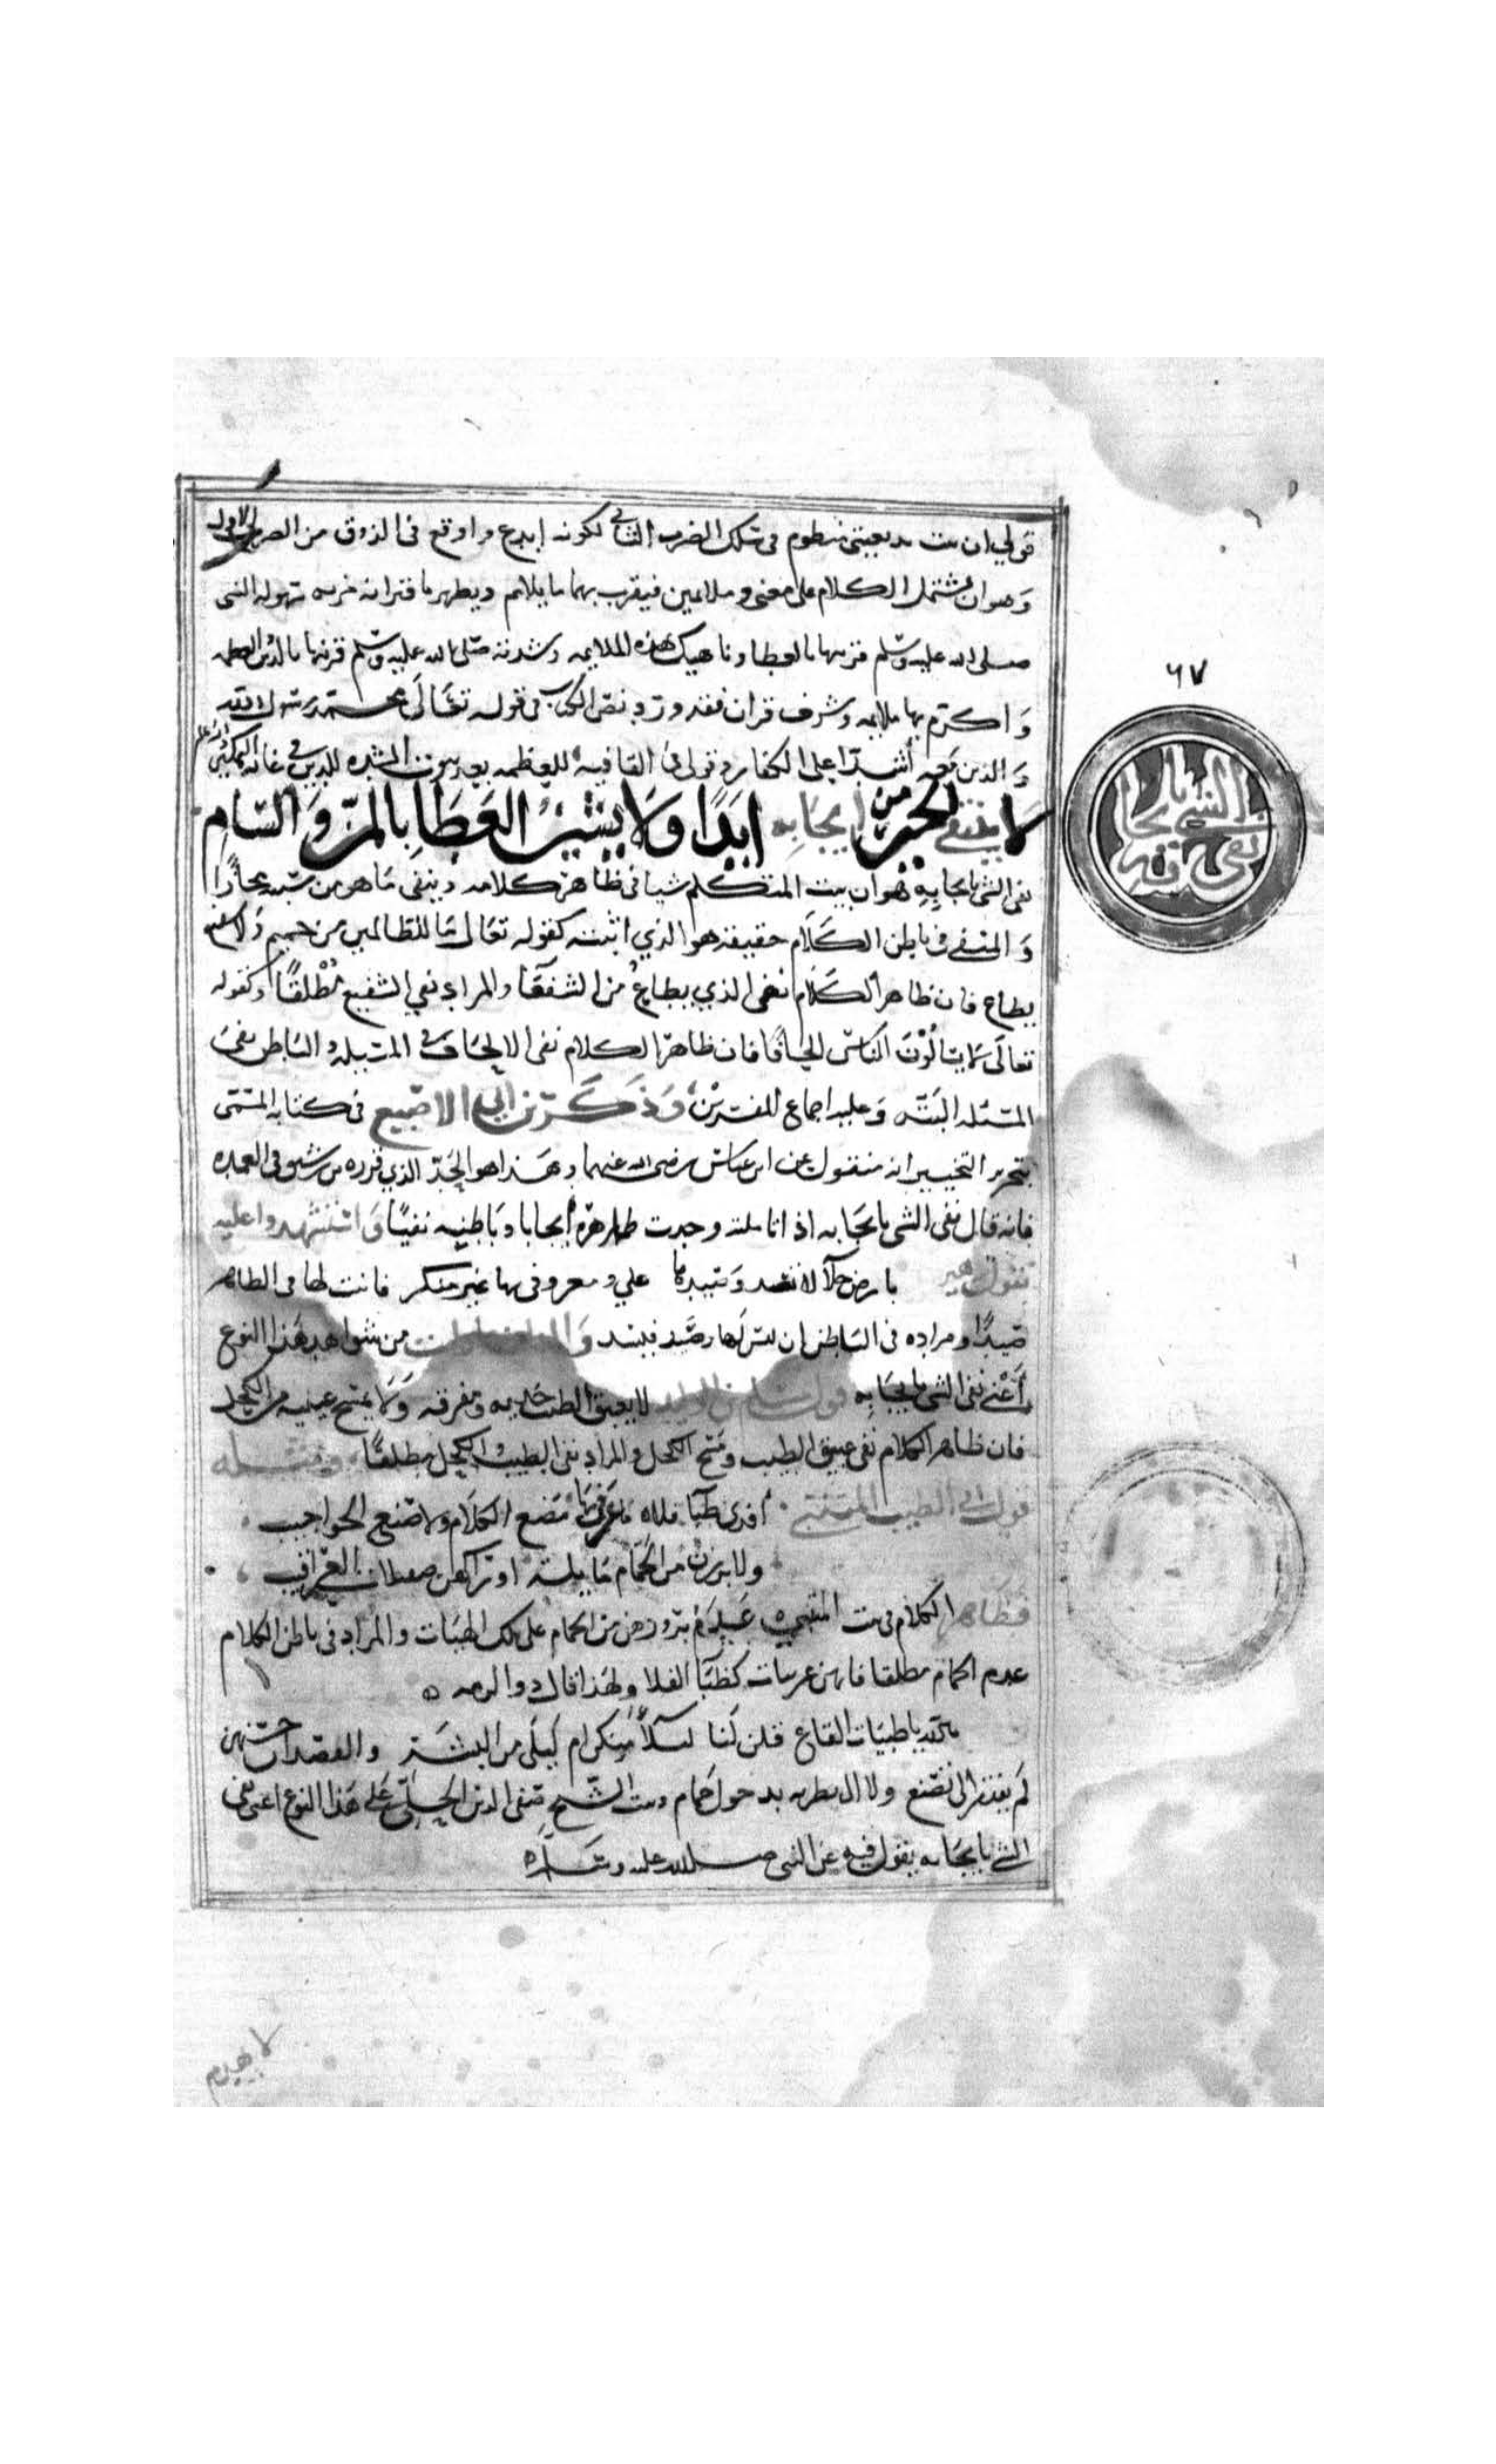 قولي ان بيت بديعيتي منظوم في سلك الضرب الثاني لكونه ابدع واوقع في الذوق من الضرب الاول
وهو ان يشتمل الكلام على معنى وملايمين فيقرن بهما ما يلايم ويظهر باقترانه مزيه سهوله النبي
صلى الله عليه وسلم قرنتها بالعطا وناهيك بهذه الملايمه وشدته صلى الله عليه وسلم قرنها بالدين العظيم
وَاكرم بها ملايمه وشرف قران فقد ورد نص الكتاب في قوله تعَالَى محمد رسول الله
وَالذين معه أشدآ على الكفار وقولى في القافيه للعظمه بعد ثبوت الشده للدين في غايه التمكين
لا ينتفي الخير من ايجابه ابَدًا وَلَا يشين العَطَا بِالمَنّ وَالسّام
نفى الشي بايجابه هو ان يثبت المتكلم شيا في ظاهر كلامه وينفى مَا هو من سببه مجازًا
وَالمنفى في باطن الكَلَام حقيقة هو الذي اثبته كقوله تعَالى مَا للظالمين من حميم وَلا شفيع
يطاع فان ظاهر الكَلَام نفى الذي يطاع من الشفعَا والمراد نفي الشفيع مُطْلقًا وكقوله
تعالَى لا يسَالُوْن الناسَ الحافا فان ظاهر الكلام نفى الالحَاف في المسيله والبَاطن نفىَ
المسئله البتة وَعليه اجماع المفسرين وَذَكَرَ ابن ابي الاصبع في كتابه المسَمى
بتحرير التحبير انه منقول عن ابن عباس رضى الله عنهما وهَذا هو الحَدّ الذي قرره بن رشيق في العمده
فانه قال نفى الشي بايجَابه اذا تاملته وجدت ظاهره أيجابا وبَاطنه نفيًا وَاستشهدوا عليه
بقول زهير بارض خلآ لا يسَد وَصيدها علي ومعروفى بها غير منكر فاثبت لها في الظاهر
وصيدًا ومراده في البَاطن ان ليسَ لها وصَيد فيسَد من شواهد هَذا النوع
أعْني نفى الشي بايجَابه قول مسلم بن الوليد لا يعبق الطيب خديه ومفرقه وَلَا يمسَح عينيه من الكحل
فان ظاهر الكلام نفى عبق الطيب ومَسح الكحل والمراد نفى الطيب والكحل مطلقًا ومثله
قول ابي الطيب المتنبي افدى ظبَآ فلاه مَا عَرفن بهَا مَضغ الكَلَام ولا صَبغ الحواجيب
ولا برزن من الحَمّام مَايلة اوراكهن صقيلات العَرَاقيب
فظَاهر الكلام في بيت المتنبي عَدَمُ بروزهن من الحمام على تلك الهيَات والمراد في باطن الكلام
عدم الحمام مطلقا فانهن عربيات كظبَآ الفلا ولهَذا قال ذو الرمه
بالله يا ظبيَات القاع قلن لَنا ليلَايَ منكن ام لَيلَى من البشَر والقصد ان حسنهن
لَم يفتقر الى تصَنع ولا الى تطريه بدخول حَمام وبيت الشَيخ صَفي الدين الحِلِّيّ عَلى هَذا النوع اعني نفى
الشي بايجَابه يقول فيه عن النبي صلى الله عليه وسَلَم
٦٧
نفى الشي بايجابه
لا يهدم